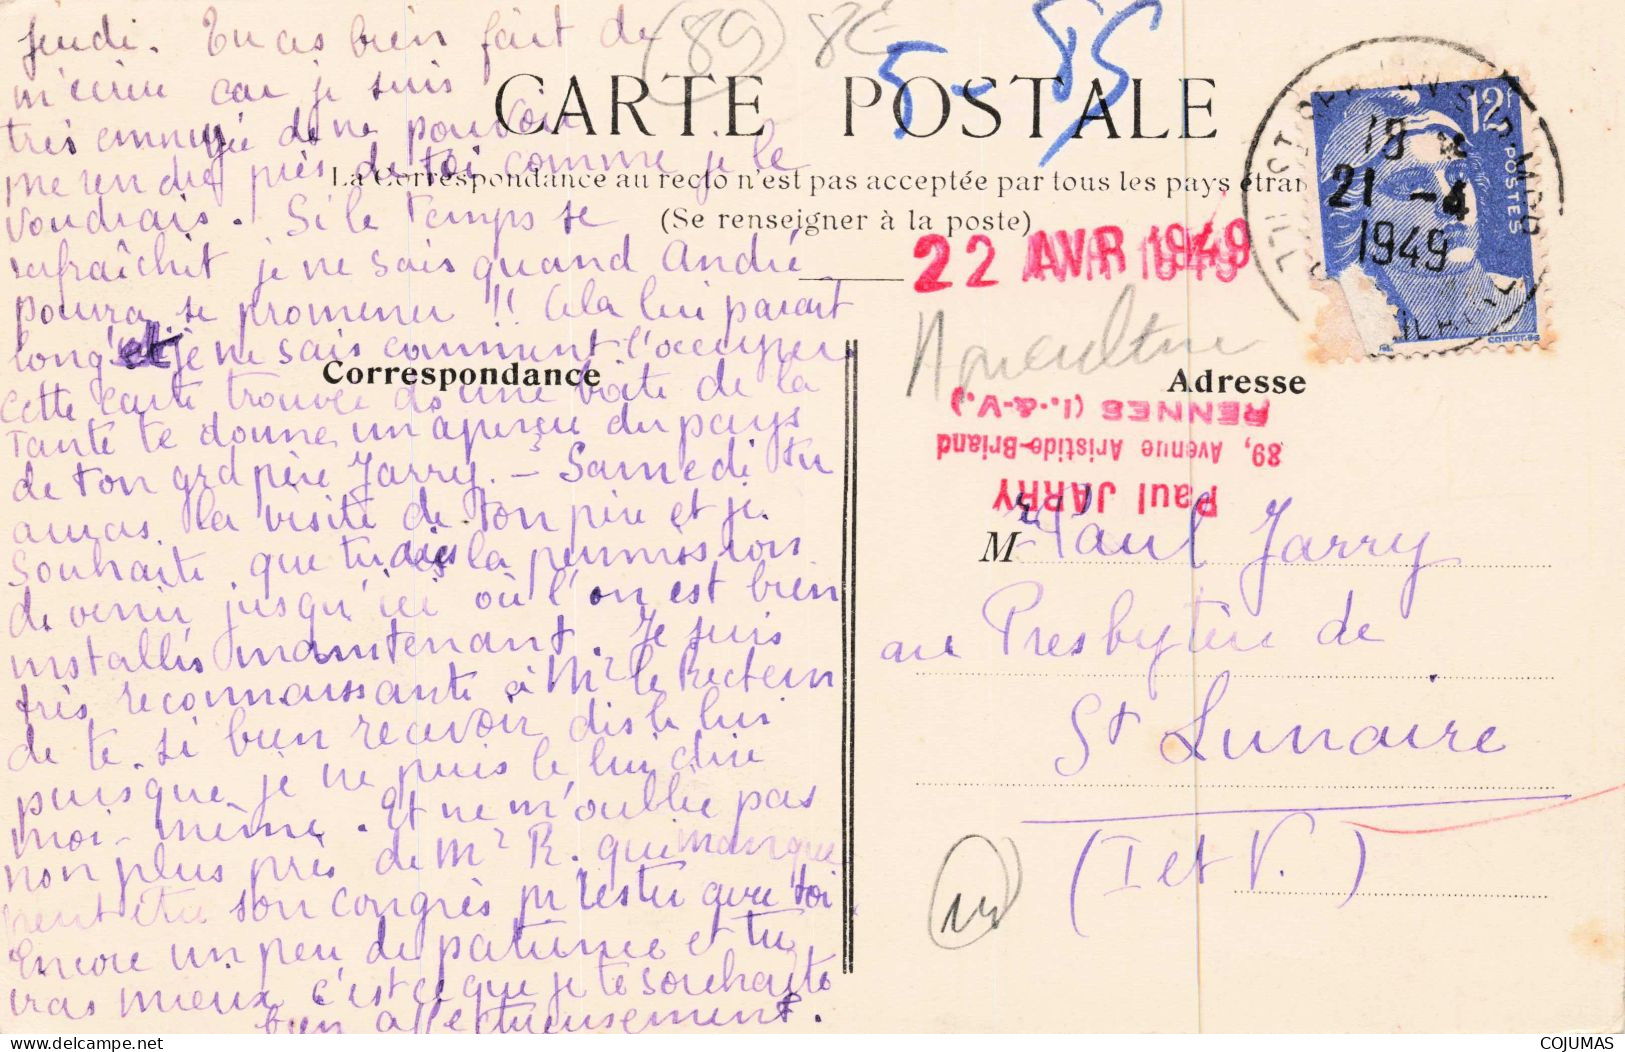 jeudi. Tu as bien fait de
m'écrire car je suis
très ennuyée de ne pouvoir
me rendre près de toi comme je le
voudrais. Si le temps se
rafraîchit je ne sais quand André
pourra se promener !! Cela lui parait
long et je ne sais comment l'occuper
cette carte trouvée ds une boîte de la
Tante te donne un aperçu du pays
de ton grd père Jarry. – Samedi tu
auras la visite de ton père et je
souhaite que tu aies la permission
de venir jusqu'ici où l'on est bien
installés maintenant. Je suis
très reconnaissante à Mr le Recteur
de te si bien recevoir dis le lui
puisque je ne puis le lui dire
moi-même. Et ne m'oublie pas
non plus près de Mr R. qui manque
peut être son congrès pr rester avec toi
Encore un peu de patience et tu
iras mieux c'est ce que je te souhaite
bien affectueusement.
(89) 8E
5 - 85
CARTE POSTALE
La Correspondance au recto n'est pas acceptée par tous les pays étran
(Se renseigner à la poste)
Correspondance
22 AVR 1949
Apiculture
Adresse
Paul JARRY
89, Avenue Aristide-Briand
RENNES (I.-&-V.)
12F
POSTES
18
21 -4
1949
M Paul Jarry
au Presbytère de
St Lunaire
(I et V.)
COJUMAS